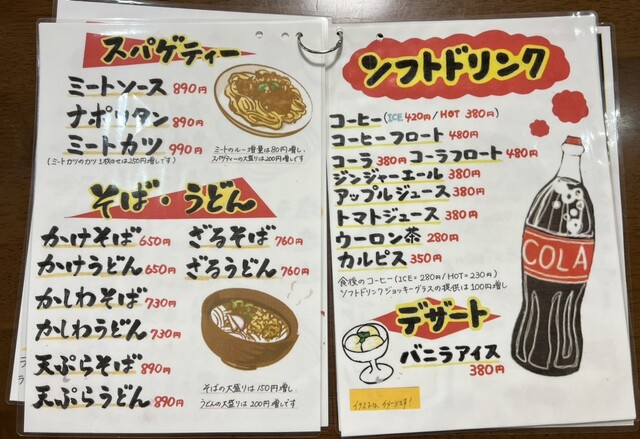 スパゲティー
ミートソース 890円
ナポリタン 890円
ミートカツ 990円
(ミートカツのカツ1枚のせは250円増しです)
ミートのルー増量は80円増し、
スパゲティーの大盛りは200円増しです
そば・うどん
かけそば 650円 ざるそば 760円
かけうどん 650円 ざるうどん 760円
かしわそば 730円
かしわうどん 730円
天ぷらそば 890円
天ぷらうどん 890円
そばの大盛りは150円増し
うどんの大盛りは200円増しです
ソフトドリンク
コーヒー(ICE 420円/HOT 380円)
コーヒーフロート 480円
コーラ 380円 コーラフロート 480円
ジンジャーエール 380円
アップルジュース 380円
トマトジュース 380円
ウーロン茶 280円
カルピス 350円
食後のコーヒー(ICE=280円/HOT=230円)
ソフトドリンクジョッキーグラスの提供は100円増し
COLA
デザート
バニラアイス
380円